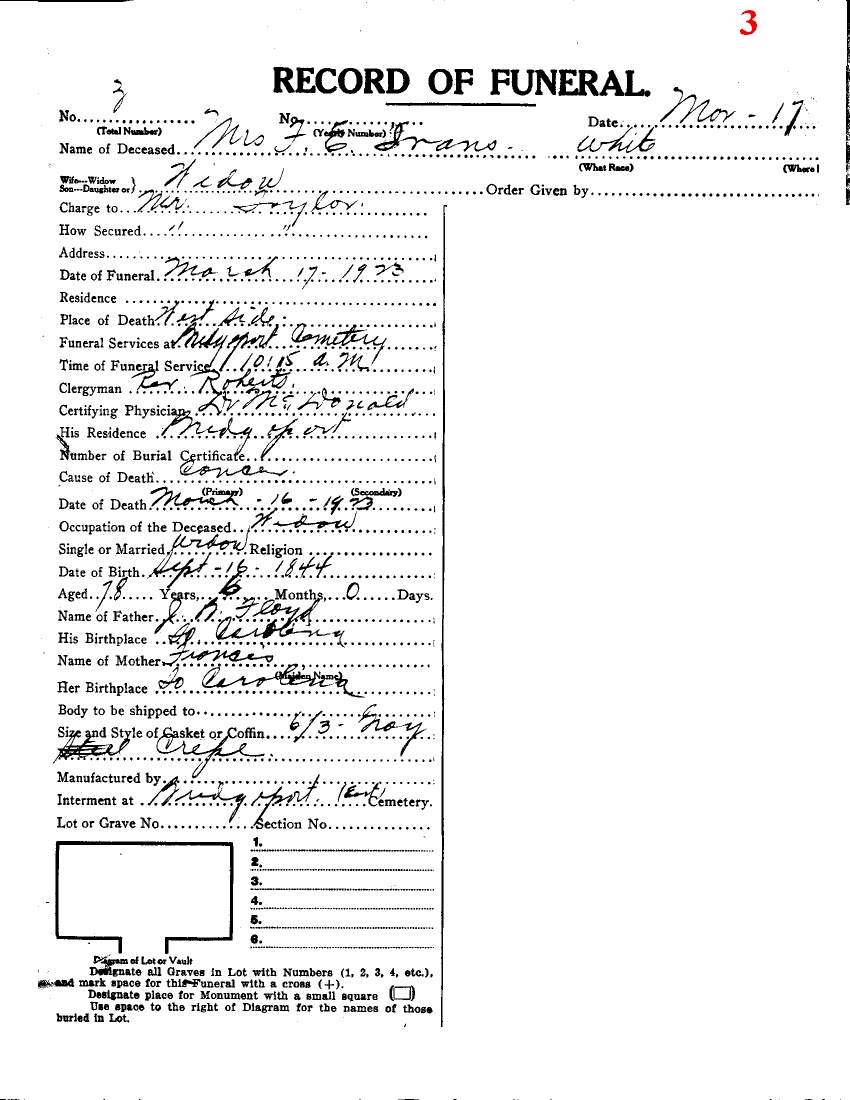 3
RECORD OF FUNERAL.
No. 3 No. Date Mar - 17
(Total Number) (Yearly Number)
Name of Deceased Mrs F. E. Evans - White
(What Race) (Where
Wife---Widow
Son---Daughter or) Widow Order Given by
Charge to Mr. Taylor
How Secured " "
Address
Date of Funeral March 17 - 1923
Residence
Place of Death West Side
Funeral Services at Bridgeport Cemetery
Time of Funeral Service 10:15 a.m
Clergyman Rev. Roberts
Certifying Physician Dr McDonald
His Residence Bridgeport
Number of Burial Certificate
Cause of Death Cancer
(Primary) (Secondary)
Date of Death March - 16 - 1923
Occupation of the Deceased Widow
Single or Married Widow Religion
Date of Birth Sept - 16 - 1844
Aged 78 Years, 6 Months, 0 Days.
Name of Father J. Floyd
His Birthplace So Carolina
Name of Mother Francis
(Maiden Name)
Her Birthplace So Carolina
Body to be shipped to
Size and Style of Casket or Coffin 6/3 - Gray
Crepe
Manufactured by
Interment at Bridgeport (East) Cemetery.
Lot or Grave No. Section No.
1.
2.
3.
4.
5.
6.
Diagram of Lot or Vault
Designate all Graves in Lot with Numbers (1, 2, 3, 4, etc.),
and mark space for this Funeral with a cross (+).
Designate place for Monument with a small square
Use space to the right of Diagram for the names of those
buried in Lot.